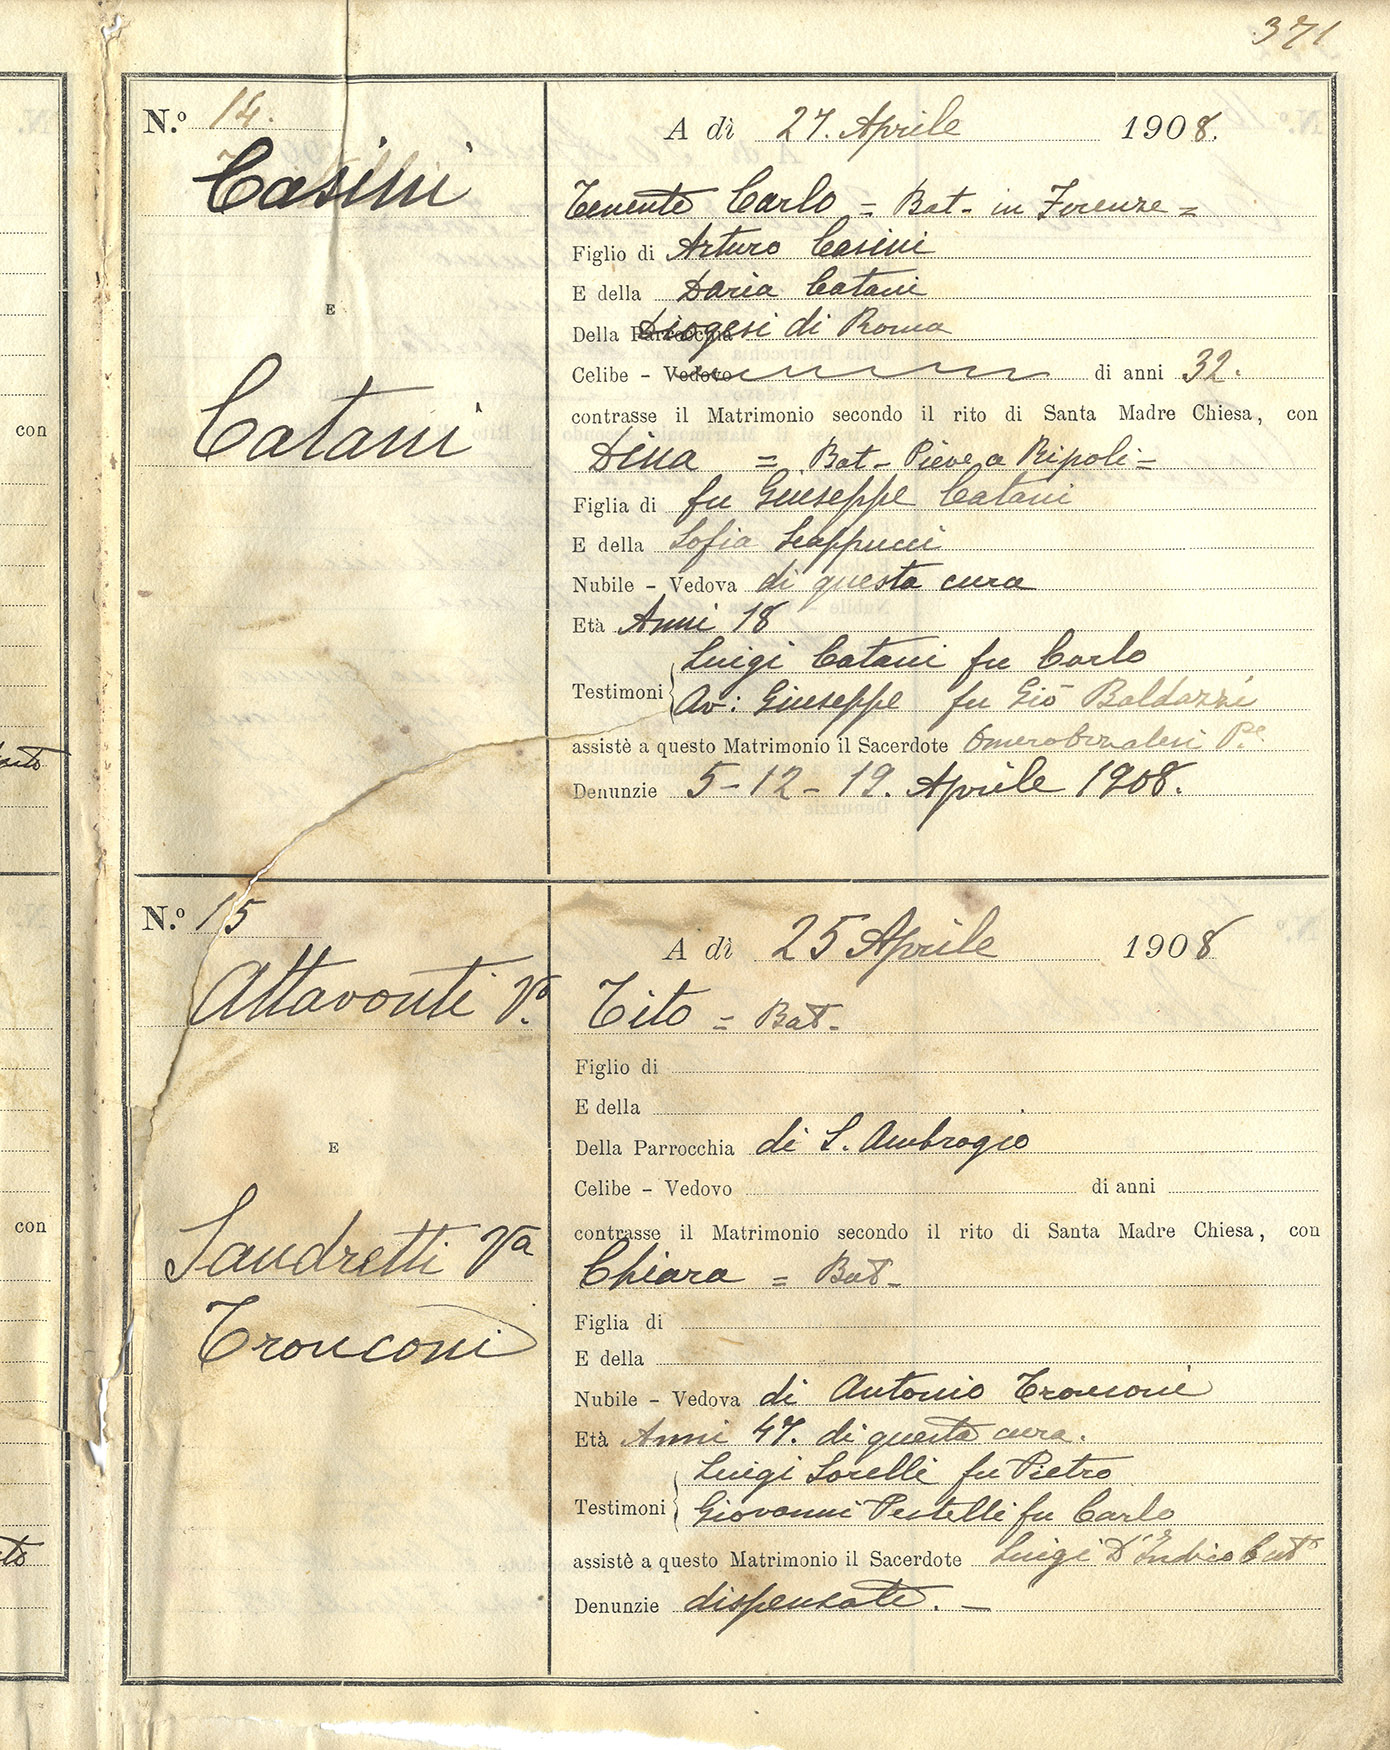 371
N.º 14.
A dì 27. Aprile 1908.
Casini
E
Catani
Tenente Carlo = Bat- in Firenze =
Figlio di Arturo Casini
E della Daria Catani
Della Parrocchia Diogesi di Roma
Celibe - Vedovo di anni 32.
contrasse il Matrimonio secondo il rito di Santa Madre Chiesa, con
Dina = Bat- Pieve a Ripoli =
Figlia di fu Giuseppe Catani
E della Sofia Scappucci
Nubile - Vedova di questa cura
Età Anni 18
Luigi Catani fu Carlo
Testimoni
Av: Giuseppe fu Gio Baldazzi
assistè a questo Matrimonio il Sacerdote
Denunzie 5-12-19. Aprile 1908.
N.º 15
A dì 25 Aprile 1908
Attavonti Vo.
E
Sandretti Va
Tronconi
Tito = Bat-
Figlio di
E della
Della Parrocchia di S. Ambrogio
Celibe - Vedovo di anni
contrasse il Matrimonio secondo il rito di Santa Madre Chiesa, con
Chiara = Bat-
Figlia di
E della
Nubile - Vedova di Antonio Tronconi
Età Anni 47. di questa cura.
Luigi Sorelli fu Pietro
Testimoni
Giovanni Pestelli fu Carlo
assistè a questo Matrimonio il Sacerdote Luigi
Denunzie dispensate. -
con
con